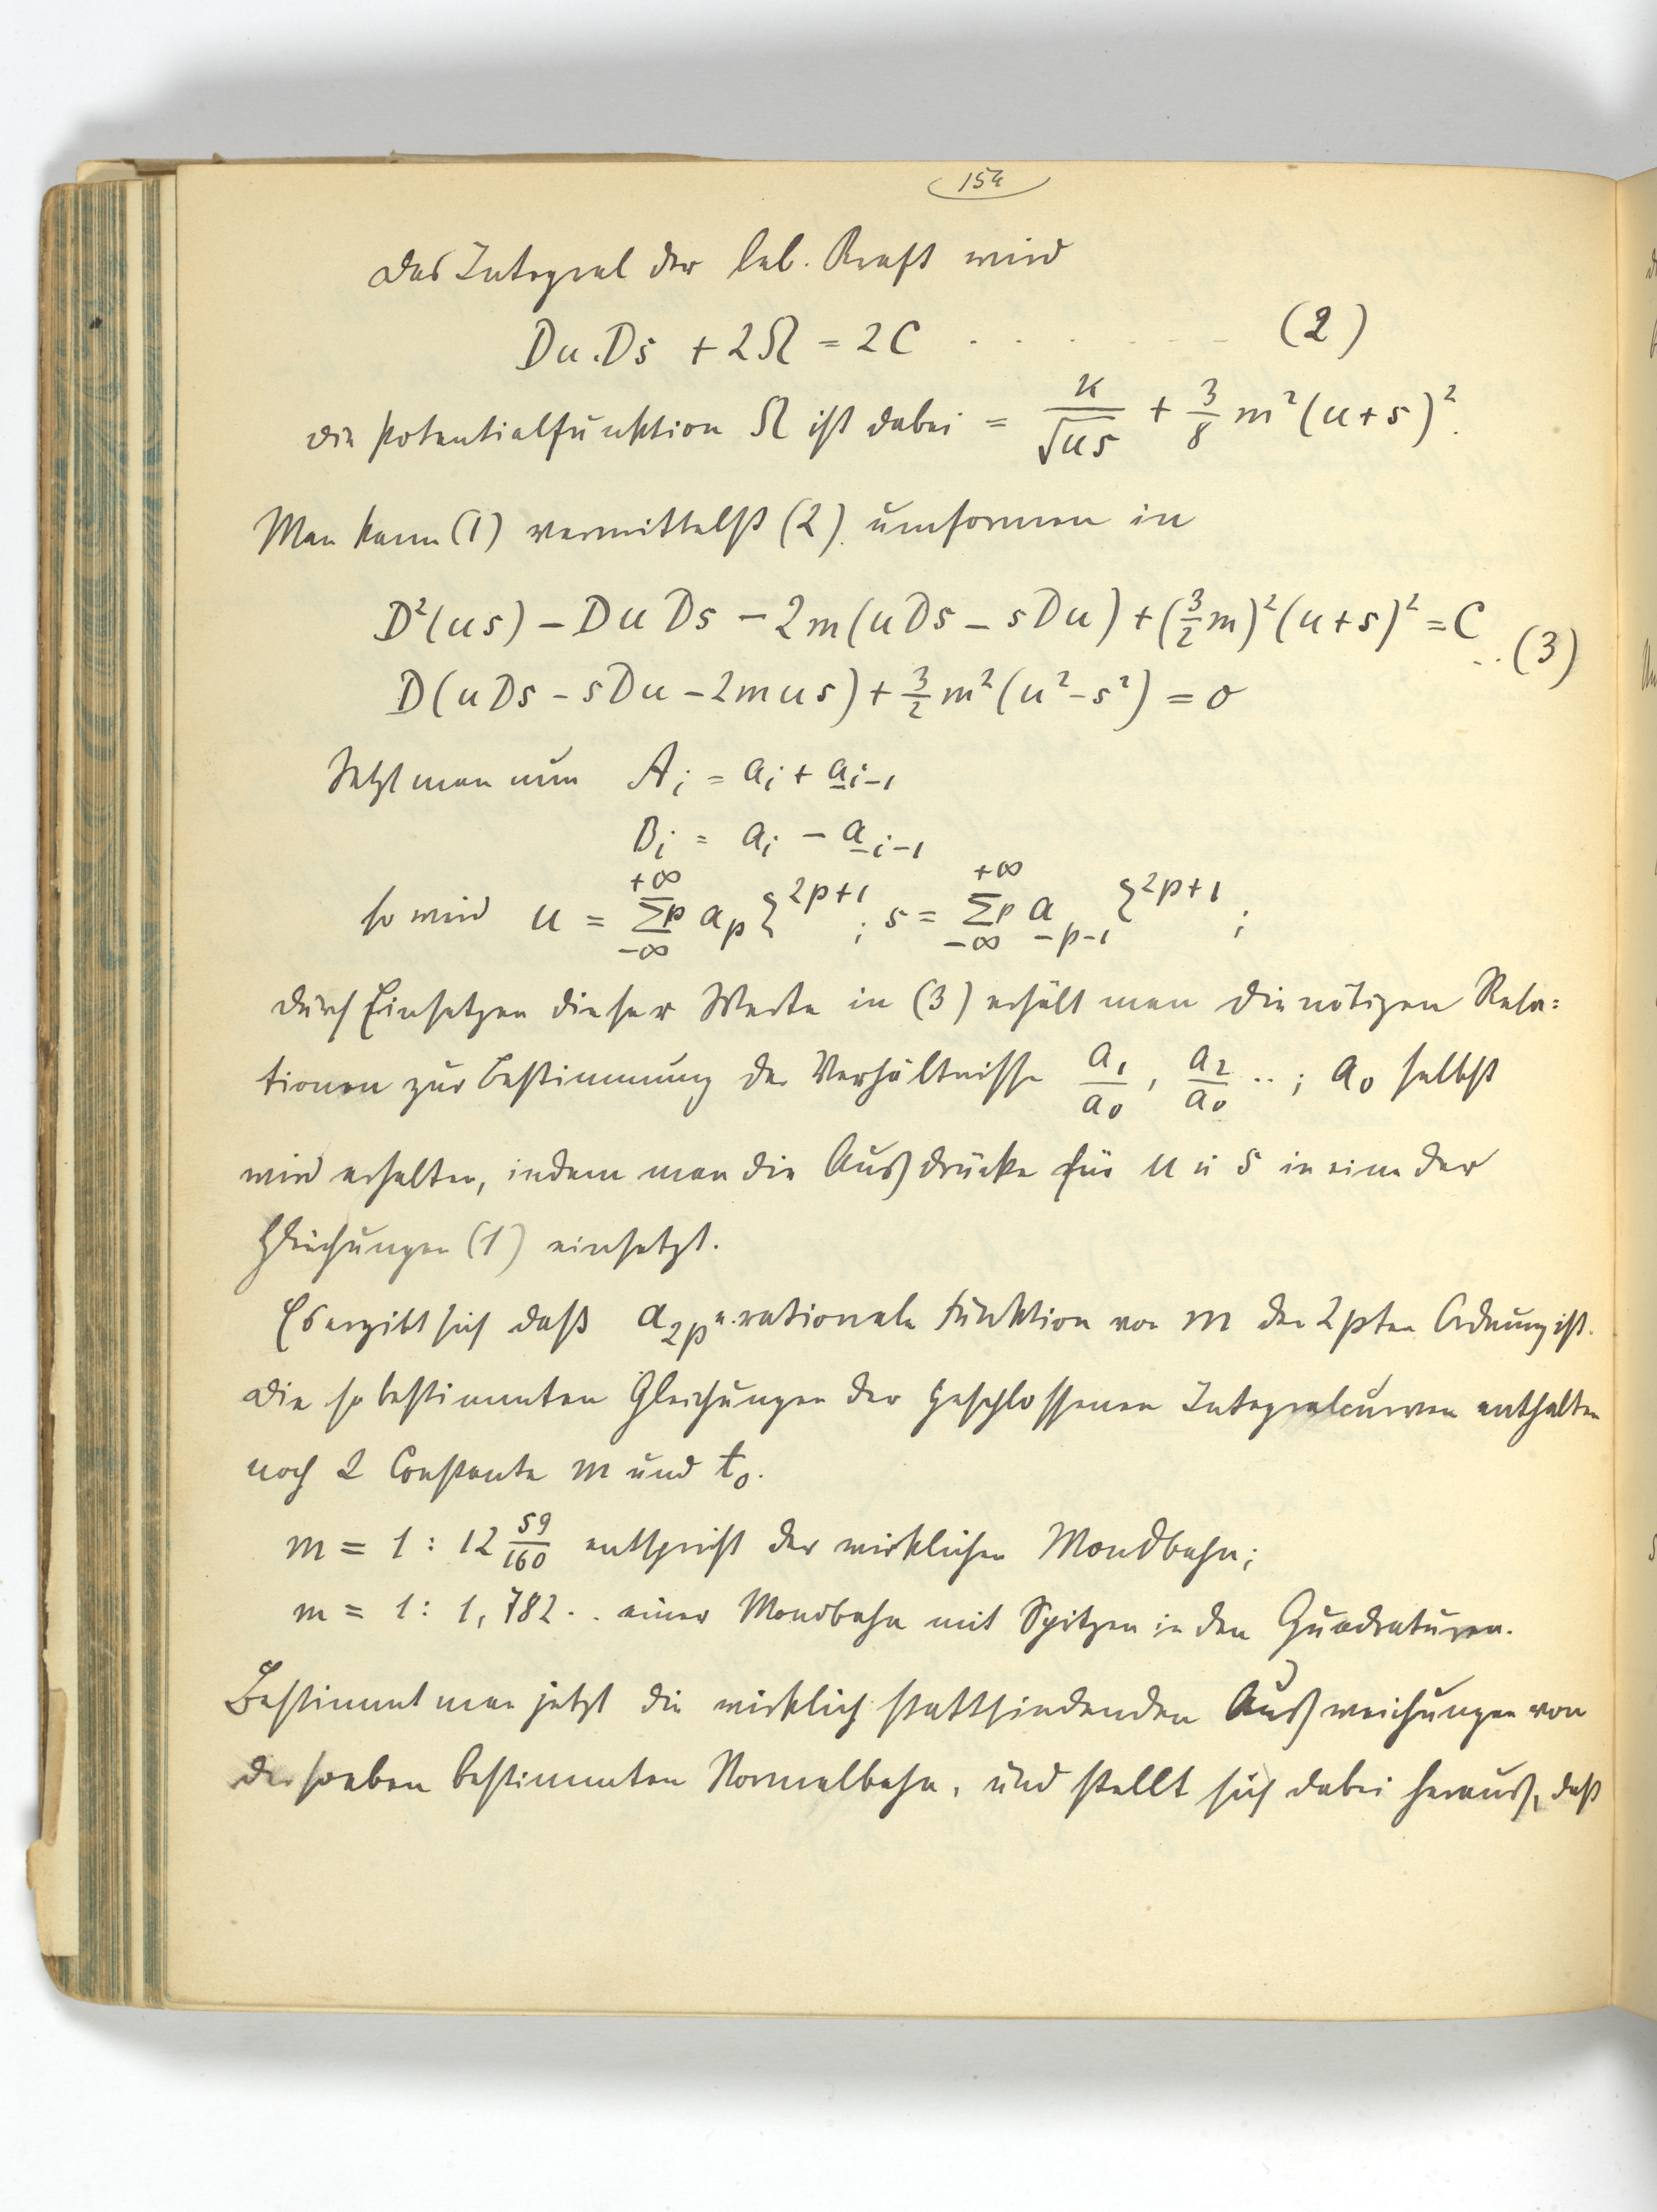 154
Das Integral der leb. Kraft wird
Du.Ds + 2Ω = 2C . . . . . . . . (2)
die Potentialfunktion Ω ist dabei = κ/√us + 3/8 m²(u+s)².
Man kann (1) vermittelst (2) umformen in
D²(us) – Du Ds – 2m(uDs – sDu) + (3/2 m)²(u+s)² = C
D(uDs – sDu – 2mus) + 3/2 m²(u²–s²) = 0 ..(3)
Setzt man nun A_i = a_i + a_{-i-1}
B_i = a_i – a_{-i-1}
so wird u = Σp_{-∞}^{+∞} a_p ζ^{2p+1}; s = Σp_{-∞}^{+∞} a_{-p-1} ζ^{2p+1};
durch Einsetzen dieser Werte in (3) erhält man die nötigen Rela=
tionen zur Bestimmung der Verhältnisse a₁/a₀, a₂/a₀ ..; a₀ selbst
wird erhalten, indem man die Ausdrücke für u u s in eine der
Gleichungen (1) einsetzt.
Es ergibt sich daß a_{2p} e. rationale Funktion von m der 2pten Ordnung ist.
Die so bestimmten Gleichungen der geschlossenen Integralcurven enthalten
noch 2 Constante m und t₀.
m = 1 : 12 59/160 entspricht der wirklichen Mondbahn;
m = 1 : 1,782 . . einer Mondbahn mit Spitzen in den Quadraturen.
Bestimmt man jetzt die wirklich stattfindenden Ausweichungen von
der soeben bestimmten Normalbahn, und stellt sich dabei heraus, daß